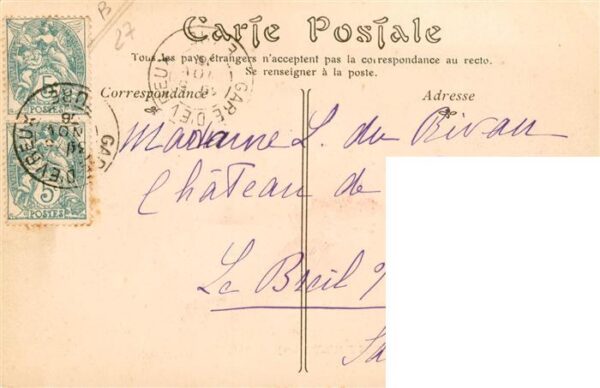 B
27
Carte Postale
Tous les pays étrangers n'acceptent pas la correspondance au recto.
Se renseigner à la poste.
Correspondance
Adresse
GARE D'EVREUX
5
POSTES
GARE D'EVREUX
NOV
5
POSTES
Madame L. du Rivau
Château de
Le Breil s/
Sa